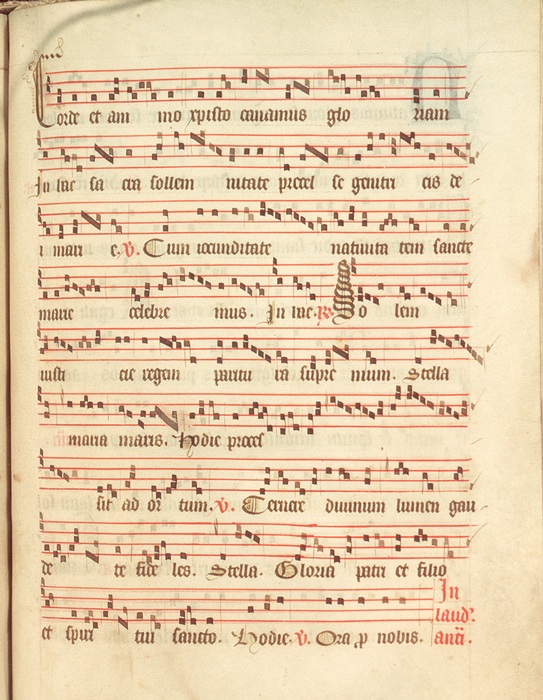 Corde et ani mo xpisto canamus glo riam
In hac sa cra sollem nitate precel se genitri cis de
i mari e. V. Cum iocunditate nativita tem sancte
marie celebre mus. In hac. R. So lem
iusti cie regem paritu ra supre mum. Stella
maria maris. Hodie proces
sit ad or tum. V. Cernere divinum lumen gau
de te fide les. Stella. Gloria patri et filio
In
laud'.
et spiri tui sancto. Hodie. V. Ora p nobis. anti.